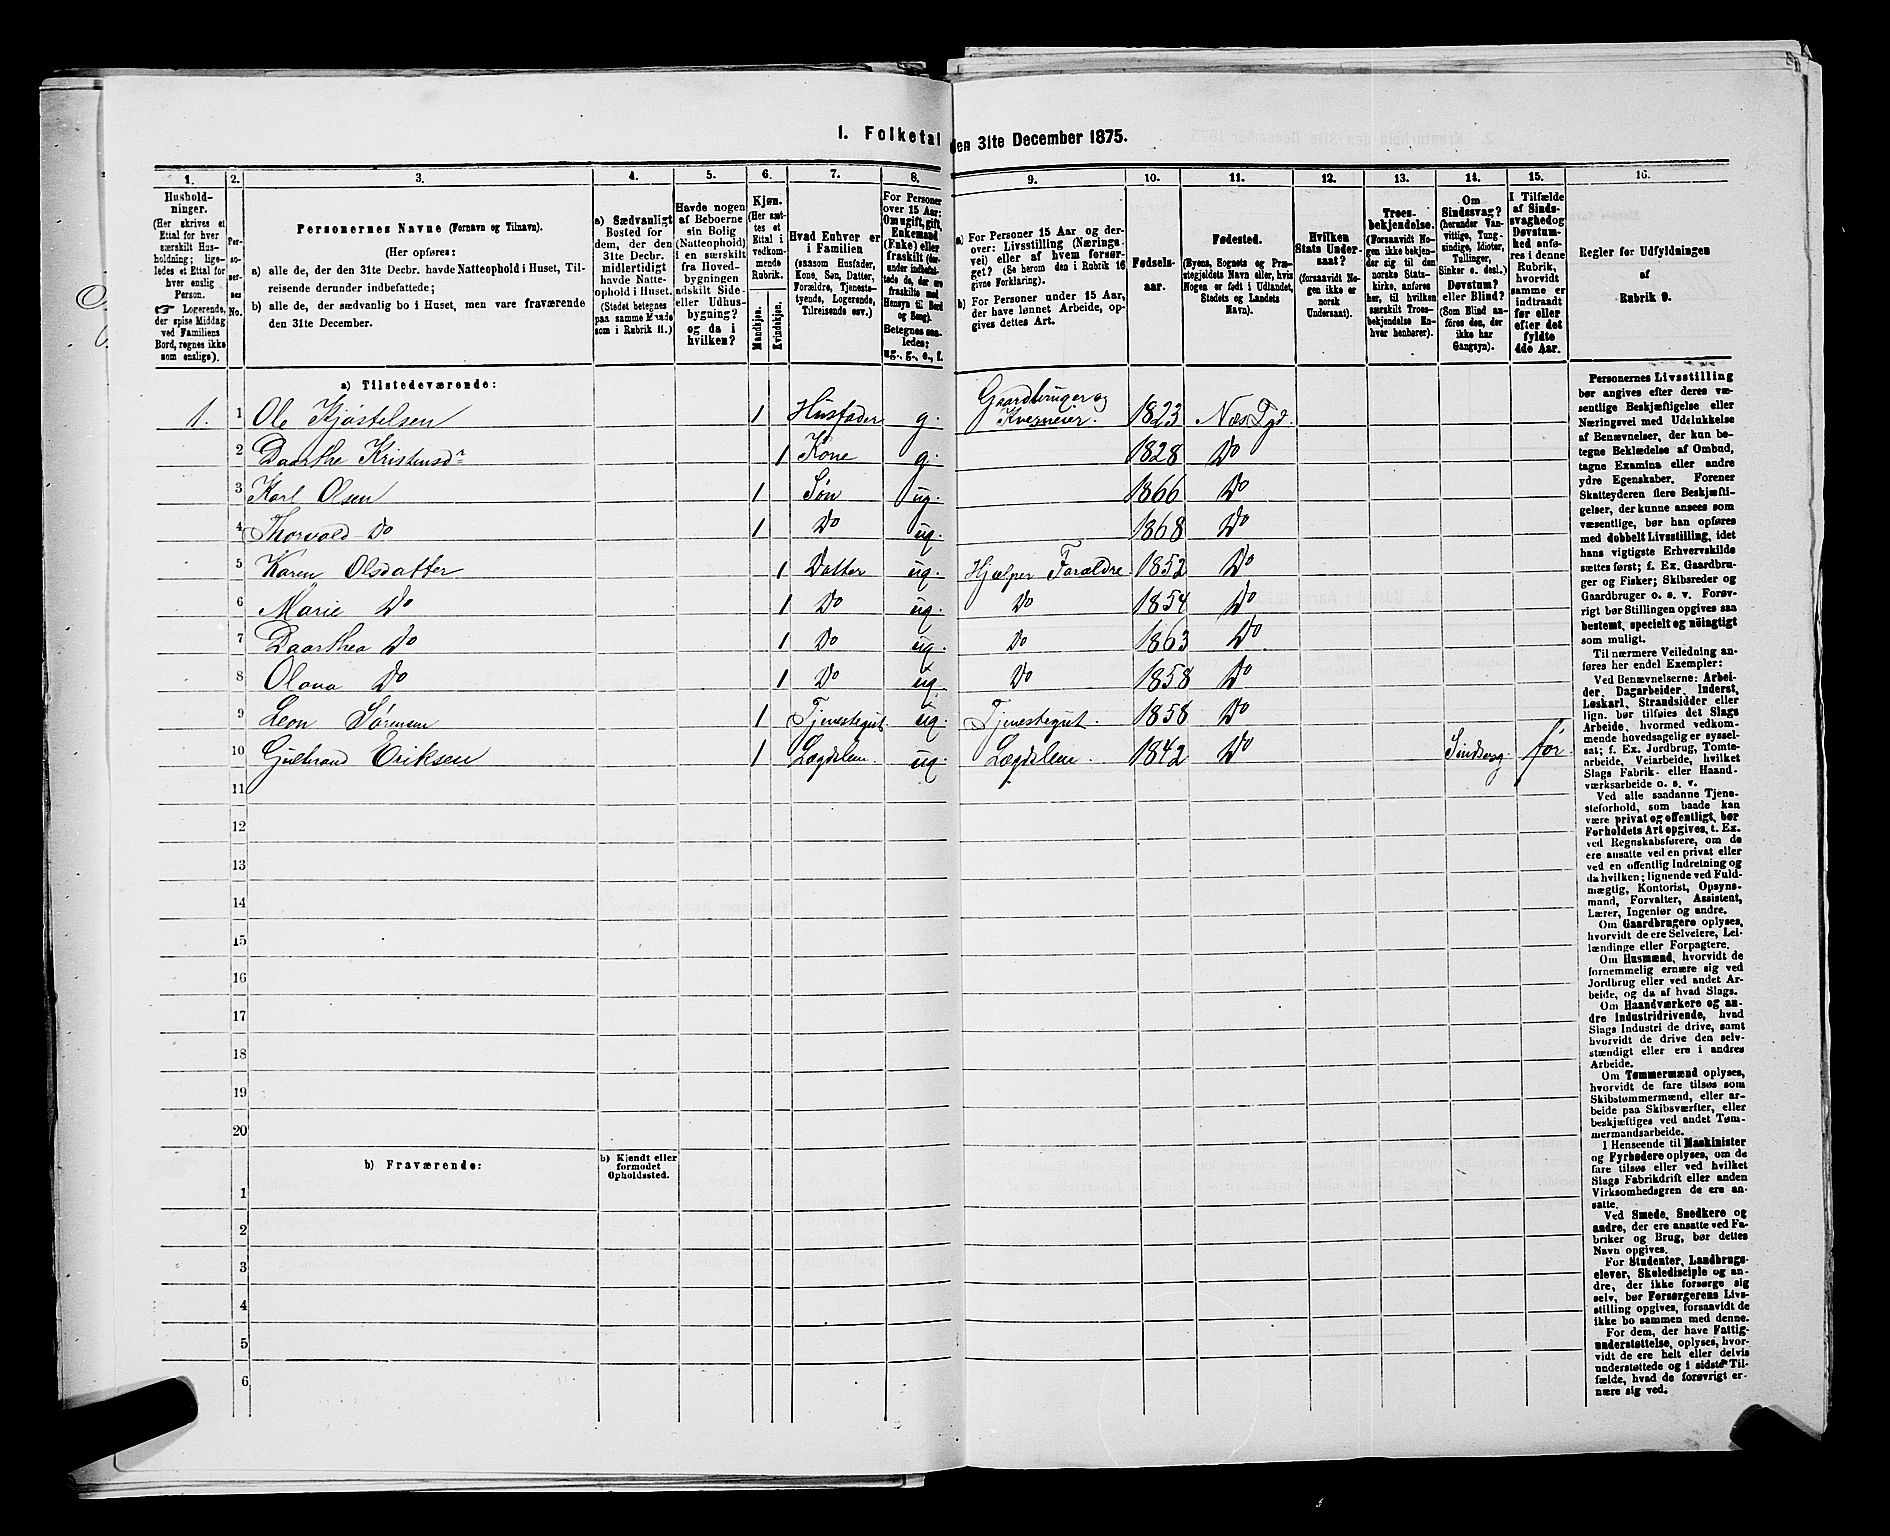 1. Folketal den 31te December 1875.
1.
2.
3.
4.
5.
6.
7.
8.
9.
10.
11.
12.
13.
14.
15.
16.
Hushold-
ninger.
(Her skrives et
Ettal for hver
særskilt Hus-
holdning; lige-
ledes et Ettal for
hver enslig
Person.
☞ Logerende,
der spise Middag
ved Familiens
Bord, regnes ikke
som enslige).
Per-
soner-
nes
No.
Personernes Navne (Fornavn og Tilnavn).
(Her opføres:
a) alle de, der den 31te Decbr. havde Natteophold i Huset, Til-
reisende derunder indbefattede;
b) alle de, der sædvanlig bo i Huset, men vare fraværende
den 31te December.
a) Sædvanligt
Bosted for
dem, der den
31te Decbr.
midlertidigt
havde Natte-
ophold i Huset.
(Stedet betegnes
paa samme Maade
som i Rubrik 11.)
Havde nogen
af Beboerne
sin Bolig
(Natteophold)
i en særskilt
fra Hoved-
bygningen
adskilt Side-
eller Udhus-
bygning?
og da i
hvilken?
Kjøn.
(Her sæt-
tes et
Ettal i
vedkom-
mende
Rubrik.
Mandkjøn.
Kvindekjøn.
Hvad Enhver er
i Familien
(saasom Husfader,
Kone, Søn, Datter,
Forældre, Tjeneste-
tyende, Logerende,
Tilreisende osv.)
For Personer
over 15 Aar:
Om ugift, gift,
Enkemand
(Enke) eller
fraskilt (der-
under indbefat-
tede de, der ere
fraskilte med
Hensyn til Bord
og Seng).
Betegnes saa-
ledes:
ug., g., e., f.
a) For Personer 15 Aar og der-
over: Livsstilling (Nærings-
vei) eller af hvem forsør-
get? (Se herom den i Rubrik 16
givne Forklaring).
b) For Personer under 15 Aar,
der have lønnet Arbeide, op-
gives dettes Art.
Fødsels-
aar.
Fødested.
(Byens, Sognets og Præ-
stegjeldets Navn eller, hvis
Nogen er født i Udlandet,
Stedets og Landets
Navn).
Hvilken
Stats Under-
saat?
(forsaavidt No-
gen ikke er
norsk
Undersaat).
Troes-
bekjendelse.
(Forsaavidt No-
gen ikke bekjen-
der sig til den
norske Stats-
kirke, anføres
her, til hvilken
særskilt Troes-
bekjendelse En-
hver henhører).
Om
Sindssvag?
(herunder Van-
vittige, Tung-
sindige, Idioter,
Tullinger,
Sinker o. desl.)
Døvstum?
eller Blind?
(Som Blind an-
føres den, der
ikke har
Gangsyn).
I Tilfælde
af Sinds-
svaghed og
Døvstum-
hed anfø-
res i denne
Rubrik,
hvorvidt
samme er
indtraadt
før eller
efter det
fyldte
4de Aar.
Regler for Udfyldningen
af
Rubrik 9.
a) Tilstedeværende:
1. 1 Ole Kjøstelsen 1 Husfader g. Gaardbruger og Kværneier. 1823 Næs Pgd.
2 Daarthe Kristensdr 1 Kone g. 1828 Do
3 Karl Olsen 1 Søn ug. 1866 Do
4 Thorvald Do 1 Do ug. 1868 Do
5 Karen Olsdatter 1 Datter ug. Hjælper Forældre 1852 Do
6 Marie Do 1 Do ug. Do 1854 Do
7 Daarthea Do 1 Do ug. Do 1863 Do
8 Olava Do 1 Do ug. Do 1858 Do
9 Leon Sørensen 1 Tjenestegut ug. Tjenestegut. 1858 Do
10 Gulbrand Eriksen 1 Lægdslem. ug. Lægdslem. 1842 Do Sindssvg. før.
11
12
13
14
15
16
17
18
19
20
b) Fraværende:
b) Kjendt eller
formodet
Opholdssted.
1
2
3
4
5
6
Personernes Livsstilling
bør angives efter deres væ-
sentlige Beskjæftigelse eller
Næringsvei med Udelukkelse
af Benævnelser, der kun be-
tegne Beklædelse af Ombud,
tagne Examina eller andre
ydre Egenskaber. Forener
Skatteyderen flere Beskjæfti-
gelser, der kunne ansees som
væsentlige, bør han opføres
med dobbelt Livsstilling, idet
hans vigtigste Erhvervskilde
sættes først; f. Ex. Gaardbru-
ger og Fisker; Skibsreder og
Gaardbruger o. s. v. Forøv-
rigt bør Stillingen opgives saa
bestemt, specielt og nøiagtigt
som muligt.
Til nærmere Veiledning an-
føres her endel Exempler:
Ved Benævnelserne: Arbei-
der, Dagarbeider, Inderst,
Løskarl, Strandsidder eller
lign. bør tilføies det Slags
Arbeide, hvormed vedkom-
mende hovedsagelig er syssel-
sat; f. Ex. Jordbrug, Tomte-
arbeide, Veiarbeide, hvilket
Slags Fabrik- eller Haand-
værksarbeide o. s. v.
Ved alle saadanne Tjene-
steforhold, som baade kan
være privat og offentligt, bør
Forholdets Art opgives, t. Ex.
ved Regnskabsførere, om de
ere ansatte ved en privat eller
ved en offentlig Indretning og
da hvilken; lignende ved Fuld-
mægtig, Kontorist, Opsyns-
mand, Forvalter, Assistent,
Lærer, Ingeniør og andre.
Om Gaardbrugere oplyses,
hvorvidt de ere Selveiere, Lei-
lændinge eller Forpagtere.
Om Husmænd, hvorvidt de
fornemmelig ernære sig ved
Jordbrug eller ved andet Ar-
beide, og da af hvad Slags.
Om Haandværkere og an-
dre Industridrivende, hvad
Slags Industri de drive, samt
hvorvidt de drive den selv-
stændigt eller ere i andres
Arbeide.
Om Tømmermænd oplyses,
hvorvidt de fare tilsøs som
Skibstømmermænd, eller ar-
beide paa Skibsværfter, eller
beskjæftiges ved andet Tøm-
mermandsarbeide.
I Henseende til Maskinister
og Fyrbødere oplyses, om de
fare tilsøs eller ved hvilket
Slags Fabrikdrift eller anden
Virksomhedsgren de ere an-
satte.
Ved Smede, Snedkere og
andre, der ere ansatte ved Fa-
briker og Brug, bør dettes
Navn opgives.
For Studenter, Landbrugs-
elever, Skoledisciple og an-
dre, der ikke forsørge sig
selv, bør Forsørgerens Livs-
stilling opgives, forsaavidt de
ikke bo sammen med denne.
For dem, der have Fattig-
understøttelse, oplyses, hvor-
vidt de ere helt eller delvis
understøttede og i sidste Til-
fælde, hvad de forøvrigt er-
nære sig ved.